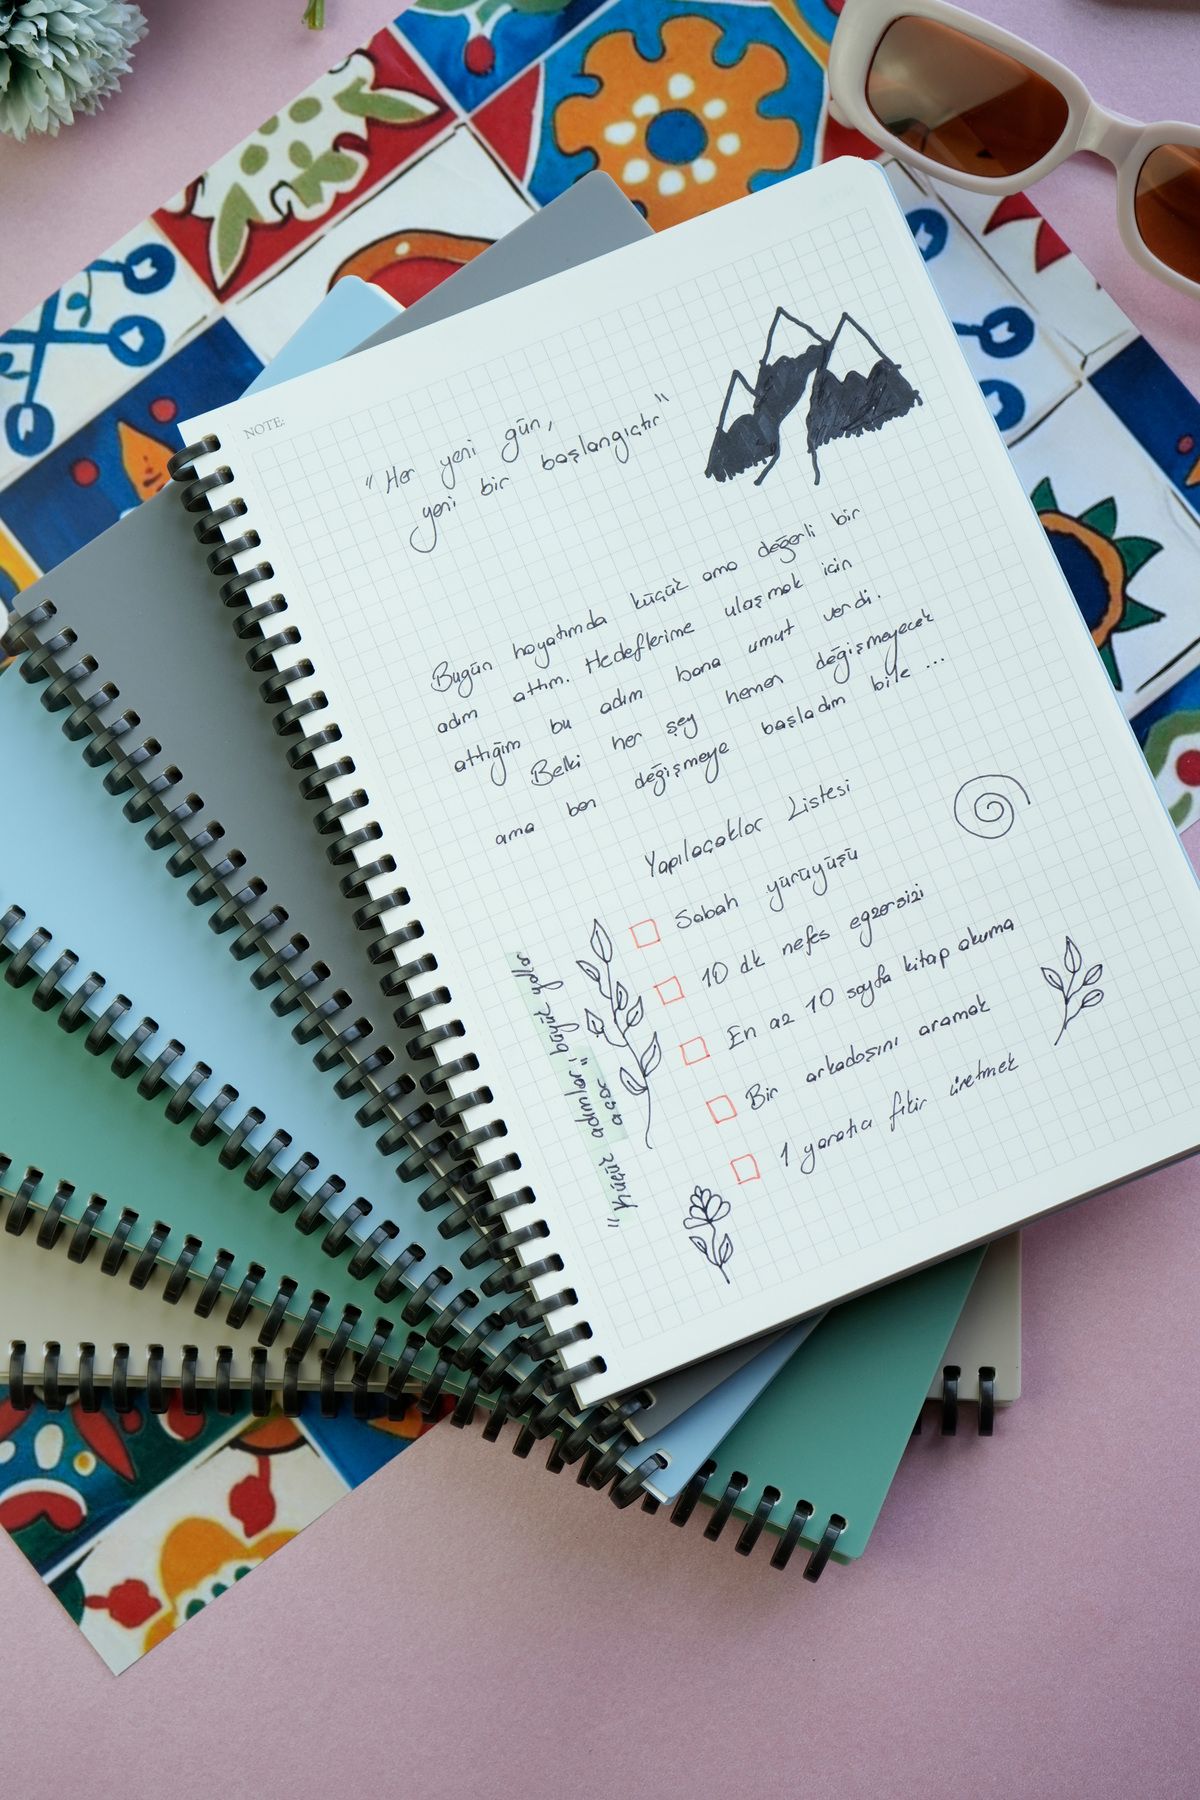 NOTE:
"Her yeni gün,
yeni bir başlangıçtır"
Bugün hayatımda küçük ama değerli bir
adım attım. Hedeflerime ulaşmak için
attığım bu adım bana umut verdi.
Belki her şey hemen değişmeyecek
ama ben değişmeye başladım bile ...
Yapılacaklar Listesi
Sabah yürüyüşü
10 dk nefes egzersizi
En az 10 sayfa kitap okuma
Bir arkadaşını aramak
1 yaratıcı fikir üretmek
"Küçük adımlar, büyük yollar
açar"